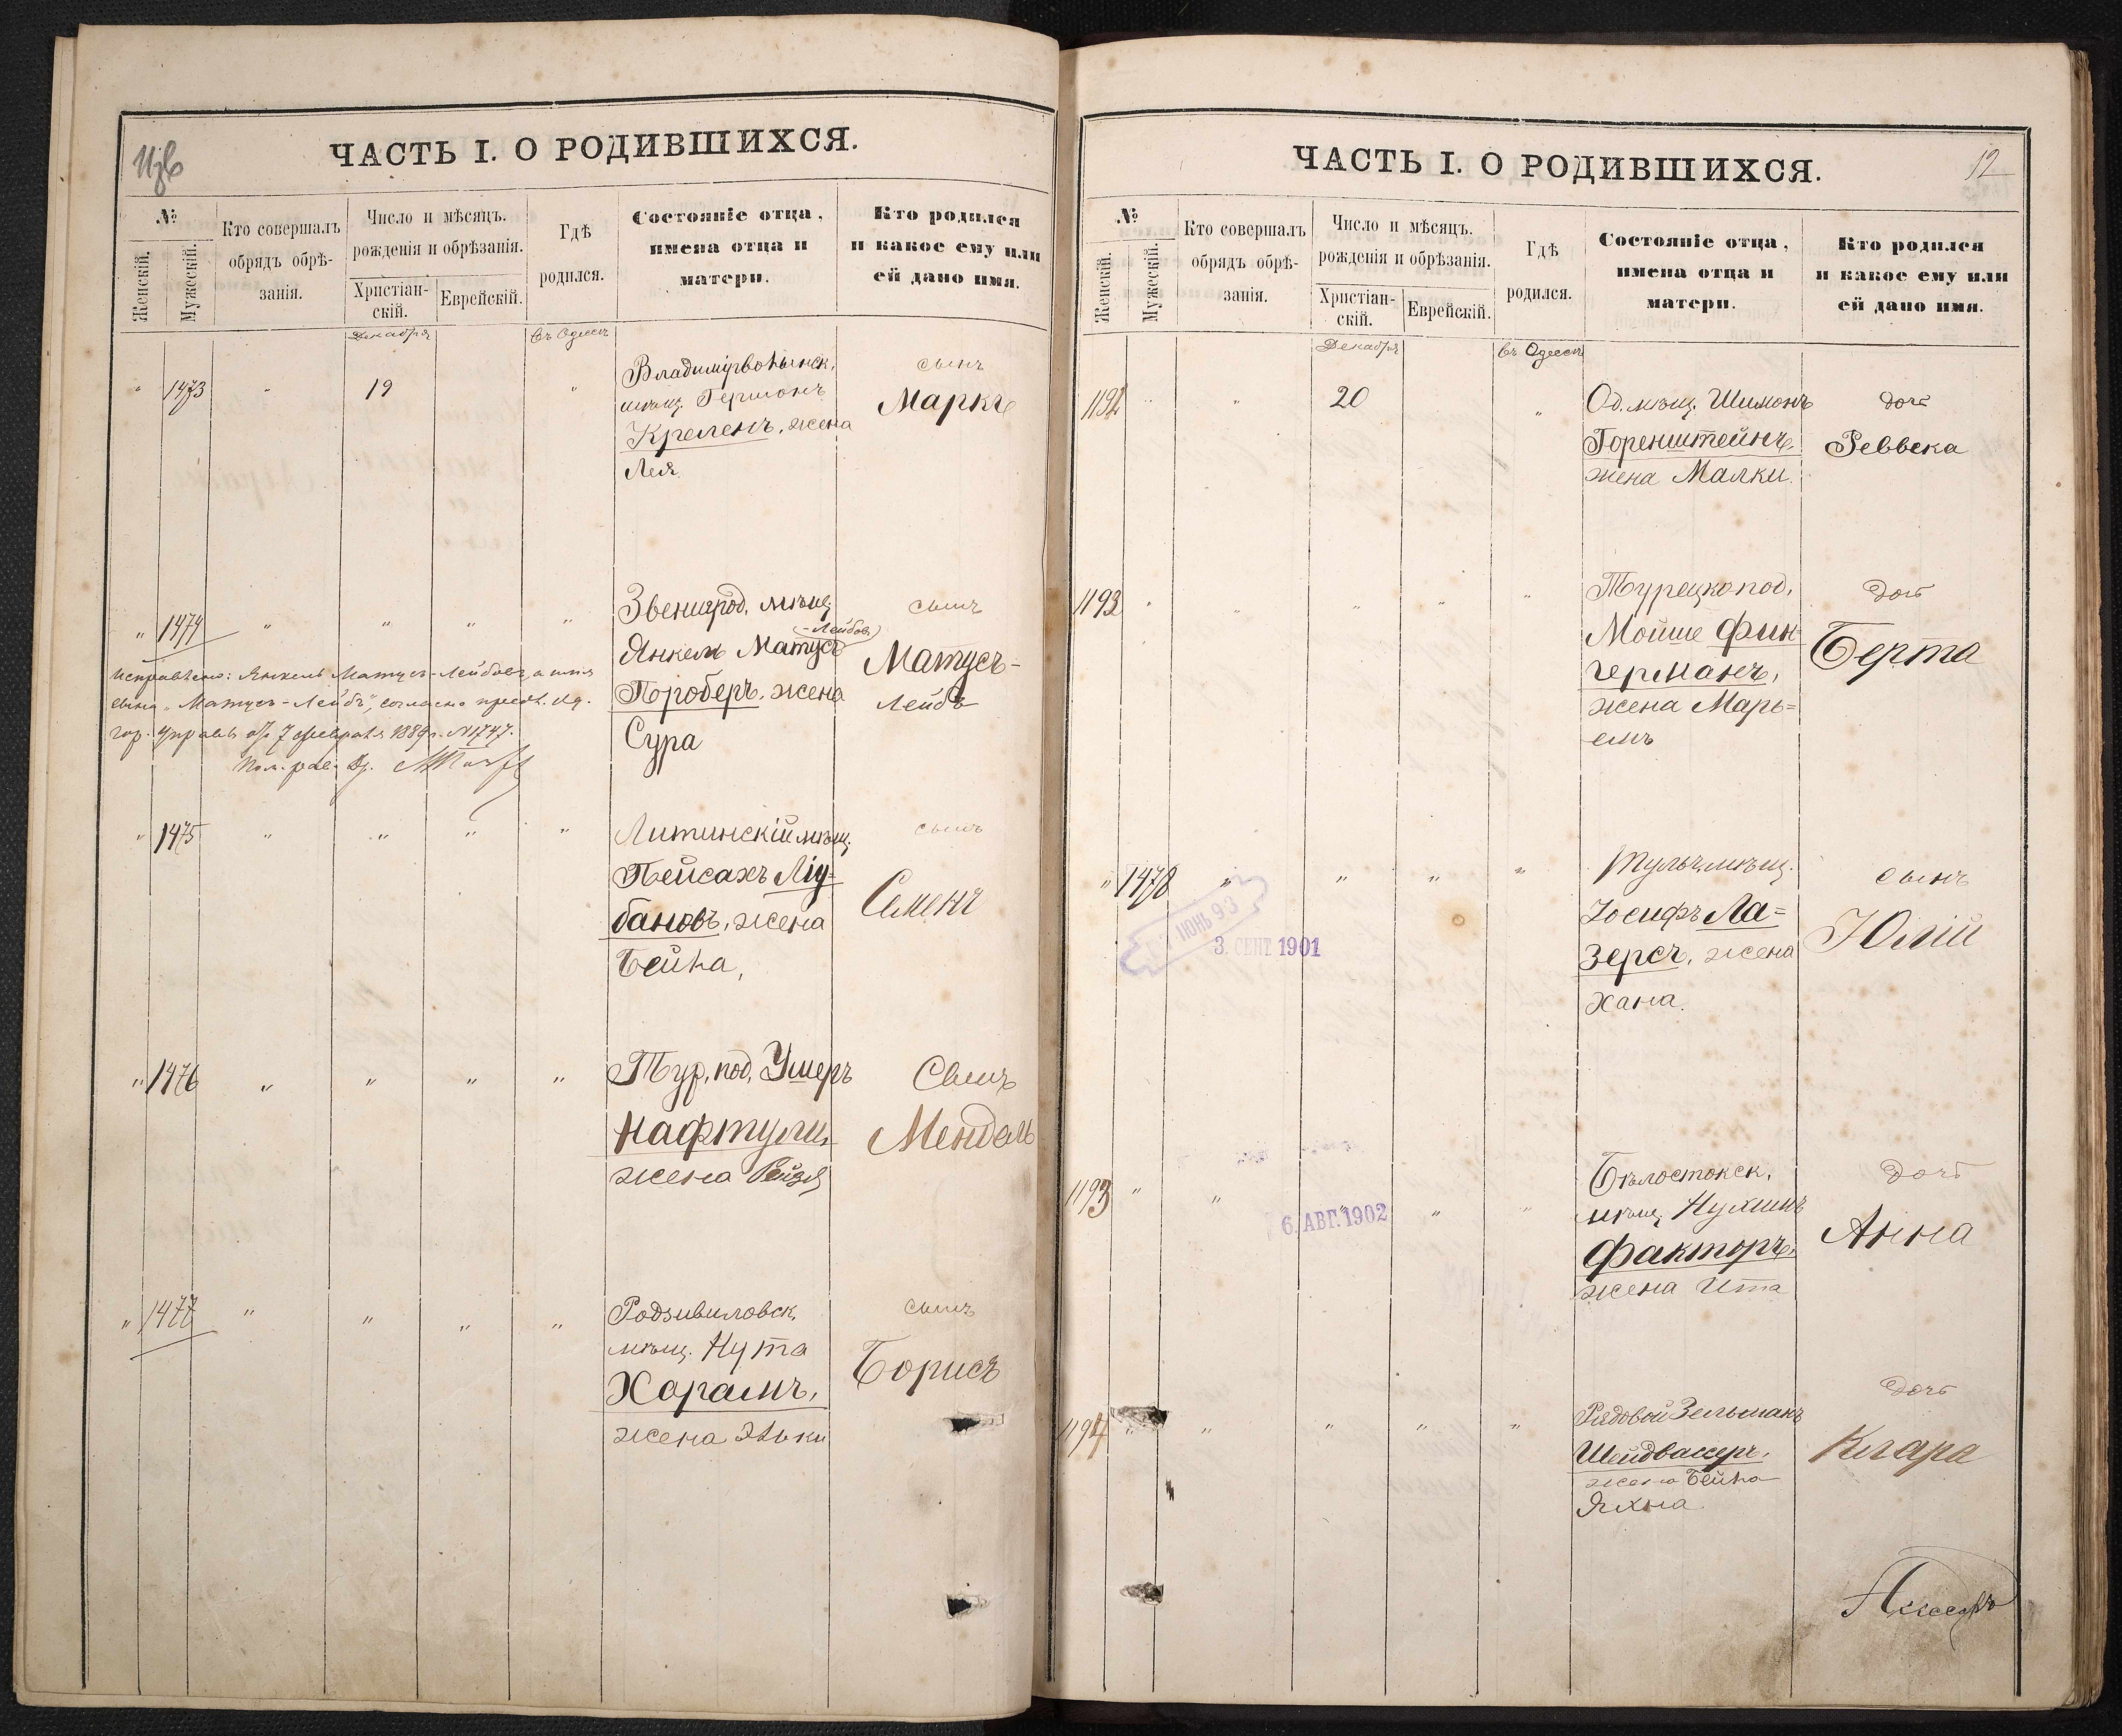 ЧАСТЬ I. О РОДИВШИХСЯ.
№
Женскій.
Мужескій.
Кто совершалъ
обрядъ обрѣ-
занія.
Число и мѣсяцъ.
рожденія и обрѣзанія.
Христіан-
скій.
Еврейскій.
Гдѣ
родился.
Состояніе отца,
имена отца и
матери.
Кто родился
и какое ему или
ей дано имя.
Декабря
Въ Одессѣ
" 1473 " 19 "
Владиміръволынск.
мѣщ. Гершонъ
Кременъ, жена
Лея.
сынъ
Маркъ
" 1474 " " " "
Звенигрод. мѣщ.
-Лейбовъ
Янкель Матусъ
Проберъ, жена
Сура
сынъ
Матусъ-
Лейбъ
Исправлено: Янкель Матусъ-Лейбовъ, а имя
сына „Матусъ-Лейбъ", согласно предл. Од.
гор. управы отъ 7 февраля 1889 г. №1747.
" 1475 " " " "
Литинскій мѣщ.
Пейсахъ Лiу-
бановъ, жена
Бейла,
сынъ
Семенъ
" 1476 " " " "
Тур. под. Умеръ
Нафтули,
жена Рейзя
Сынъ
Мендель
" 1477 " " " "
Родзивиловск.
мѣщ. Нута
Харамъ,
жена Эльки
сынъ
Борисъ
ЧАСТЬ I. О РОДИВШИХСЯ.
12
№
Женскій.
Мужескій.
Кто совершалъ
обрядъ обрѣ-
занія.
Число и мѣсяцъ.
рожденія и обрѣзанія.
Христіан-
скій.
Еврейскій.
Гдѣ
родился.
Состояніе отца,
имена отца и
матери.
Кто родился
и какое ему или
ей дано имя.
Декабря
Въ Одессѣ
1192 " " 20 "
Од. мѣщ. Шимонъ
Горенштейнъ,
жена Малки.
дочь
Реввека
1193 " " " " "
Турецкопод.
Мойше Фин-
германъ,
жена Марь=
емъ
дочь
Берта
" 1478 " " " "
ІЮНЬ 93
3. СЕНТ 1901
Тульч. мѣщ.
Іосифъ Ла=
зерсъ, жена
Хана.
сынъ
Юлій
1193 " " " " "
6. АВГ. 1902
Бѣлостокск.
мѣщ. Нухимъ
Факторъ,
жена Ита
дочь
Анна
1194 " " " " "
Рядовой Зельманъ
Шейдвассеръ,
жена Бейла
Яхна.
дочь
Клара